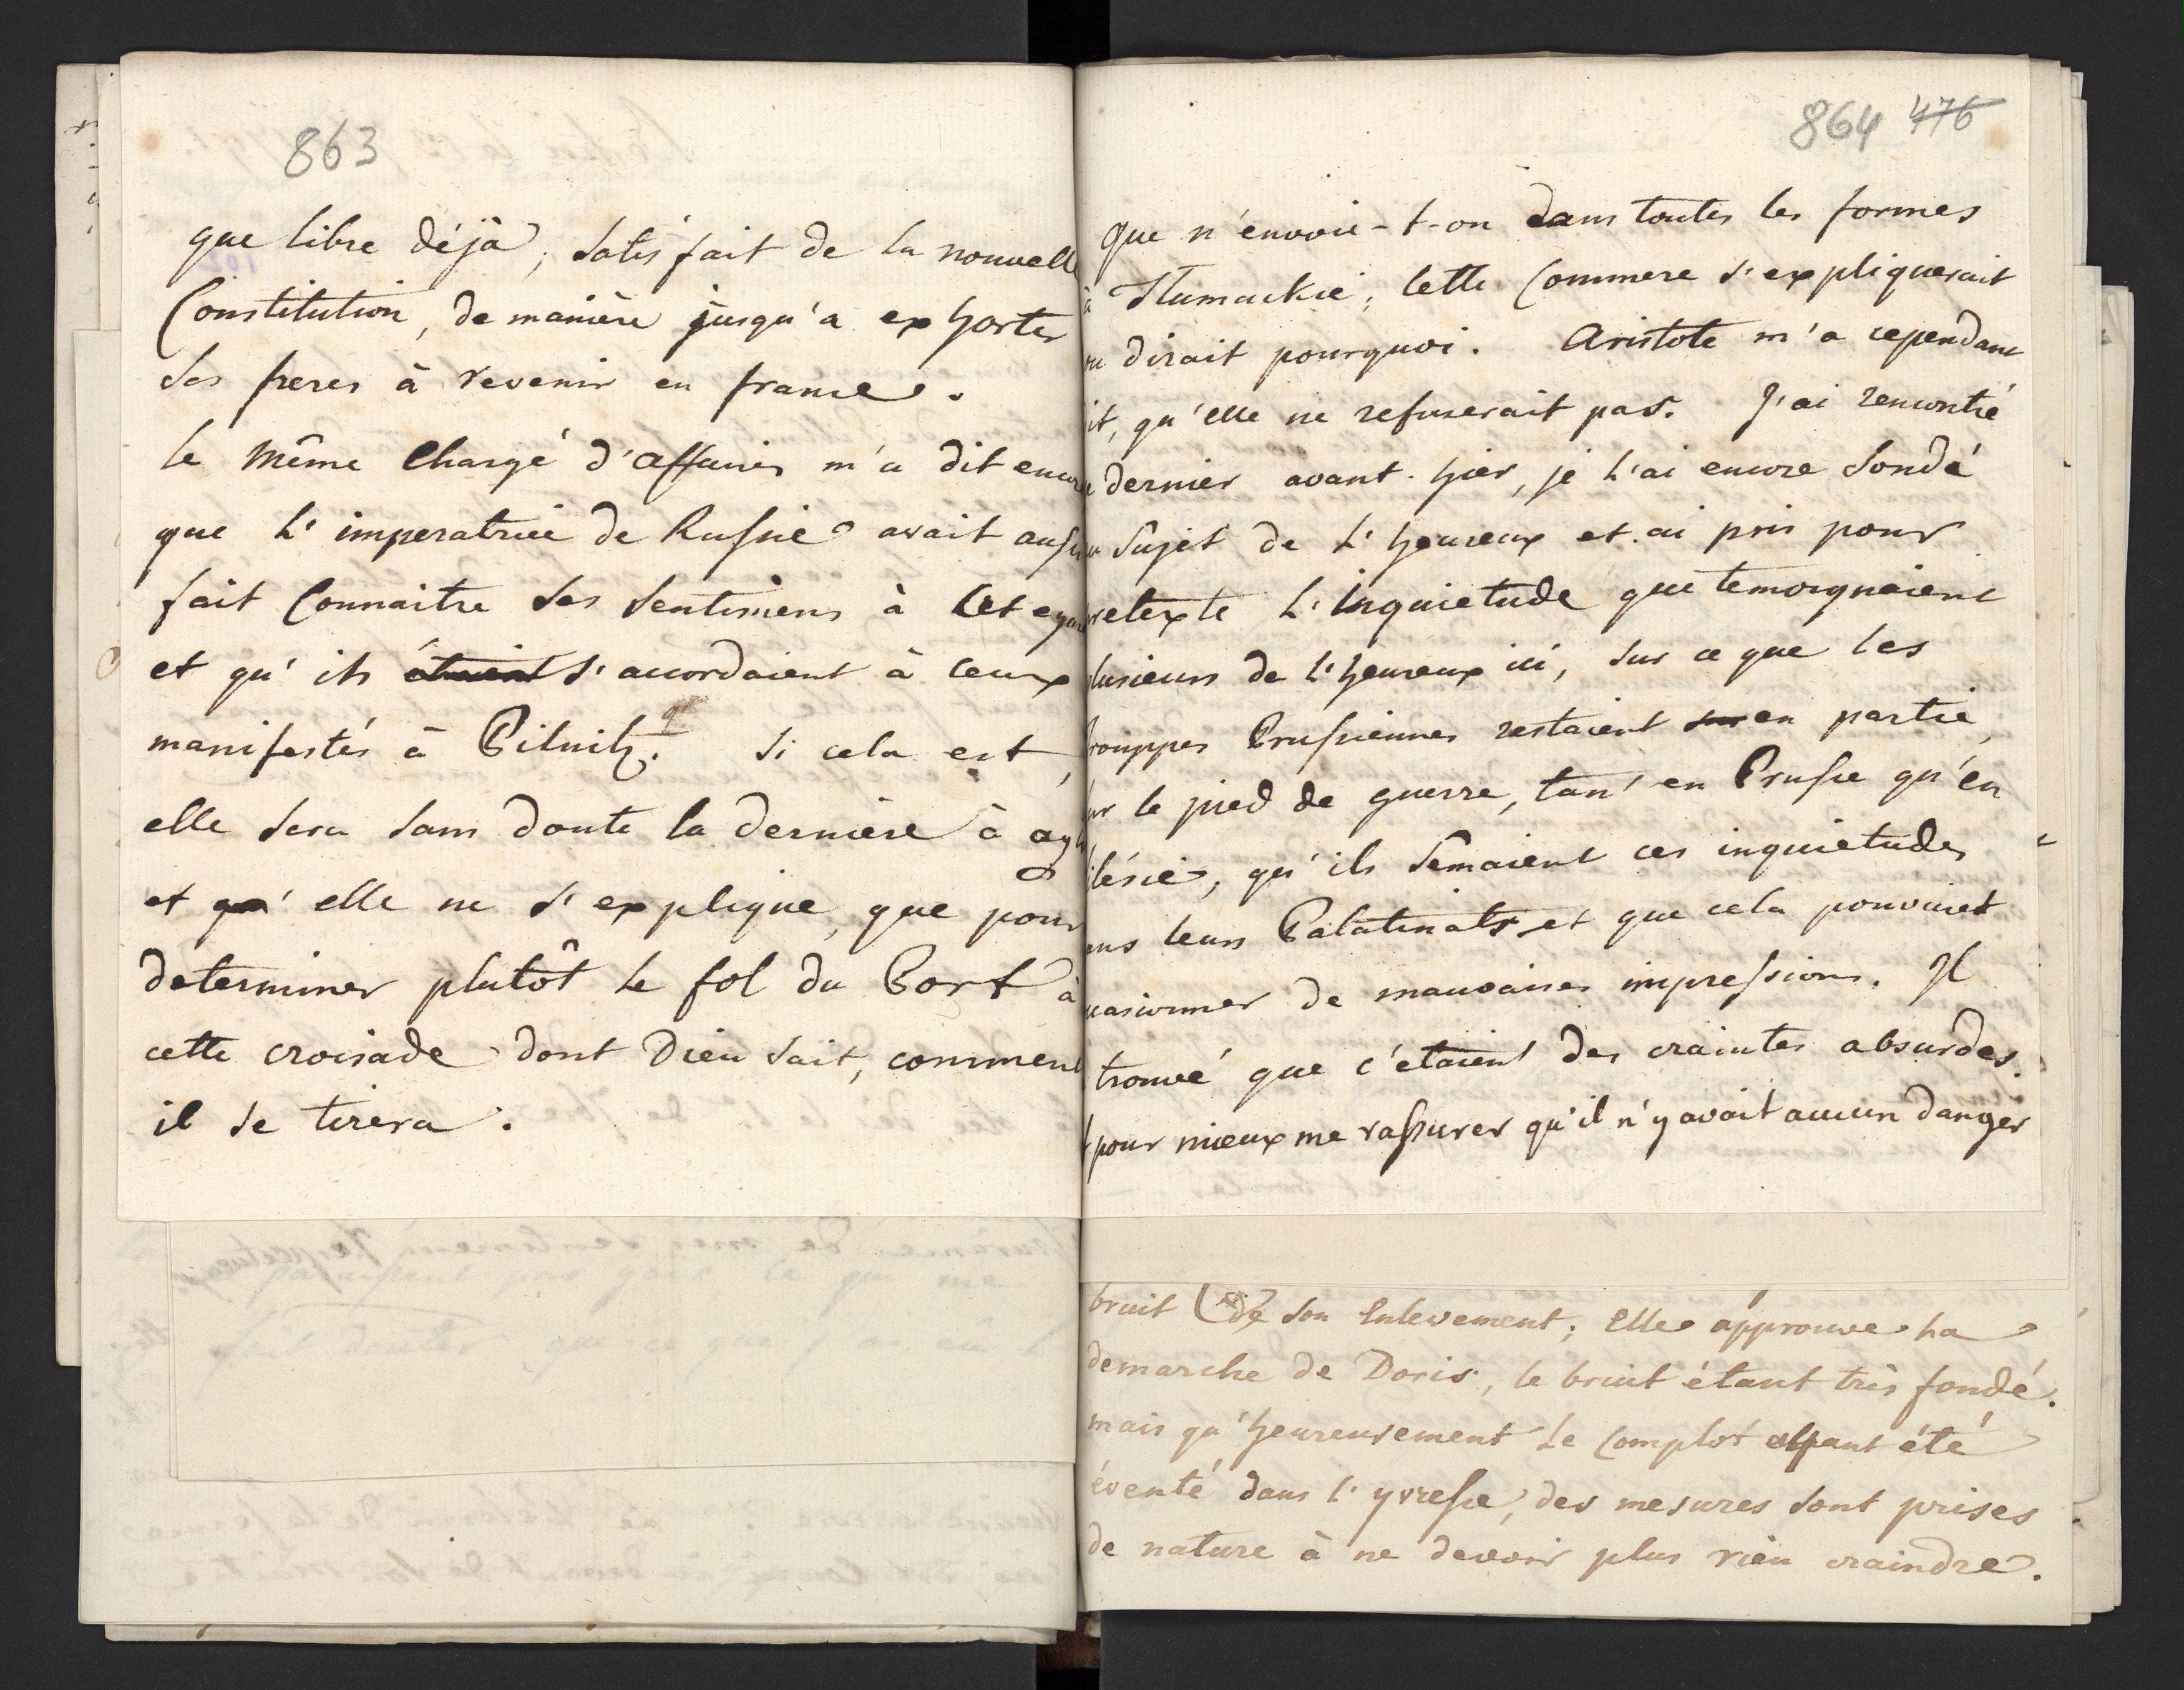 863
que libre déjà, satisfait de la nouvell
Constitution, de manière jusqu'a exhorter
ses freres à revenir en france.
le même Chargé d'affaires m'a dit encore
que l'imperatrice de Russie avait aussi
fait Connaitre ses sentimens à cet egard
et qu'ils étaient s'accordaient à ceux
manifestés à Pilnitz. si cela est,
elle sera sans doute la dernière à agir
et qu'elle ne s'explique, que pour
determiner plutôt le fol du Port à
cette croisade dont Dieu sait, comment
il se tirera.
864 476
que n'envoie-t-on dans toutes les formes
à cette Commere s'expliquerait
ou dirait pourquoi. Aristote m'a cependant
it, qu'elle ne refuserait pas. J'ai rencontré
dernier avant-hier, je l'ai encore sondé
u sujet de l'heureux et ai pris pour
pretexte l'inquietude que temoignaient
plusieurs de l'heureux ici, sur ce que les
trouppes Prussiennes restaient sur en partie,
sur le pied de guerre, tan' en Prusse qu'en
ilésie, qu'ils semaient ces inquietudes
ans leurs Palatinats et que cela pouvait
ccasionner de mauvaises impressions. Il
trouvé que c'etaient des craintes absurdes.
t pour mieux me rassurer qu'il n'y avait aucun danger
bruit de son Enlevement; Elle approuve la
demarche de Doris, le bruit étant très fondé.
mais qu'heureusement le Complot ayant été
éventé dans l'yvresse, des mesures sont prises
de nature à ne devoir plus rien craindre.